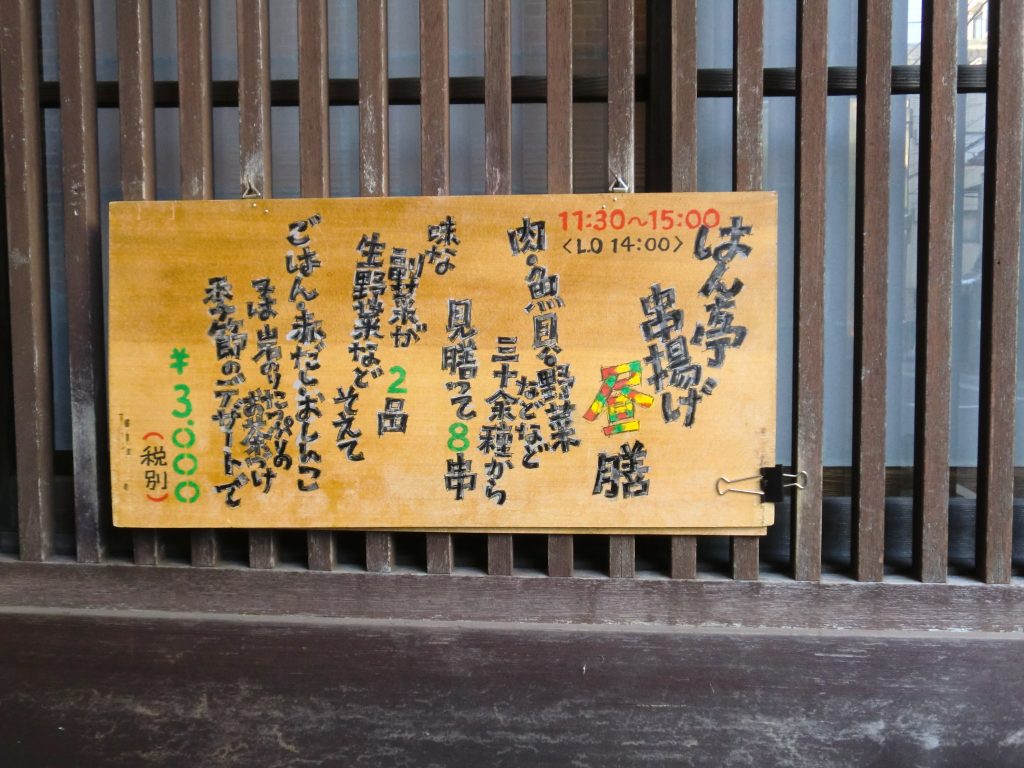 はん亭
串揚げ
昼膳
11:30～15:00
〈L.O 14:00〉
肉・魚貝・野菜
などなど
三十余種から
見膳って8串
味な
副菜が
2品
生野菜など
そえて
ごはん・赤だし・おしんこ
又は岩のりたっぷりの
お茶づけ
季節のデザートで
¥3.000
(税別)